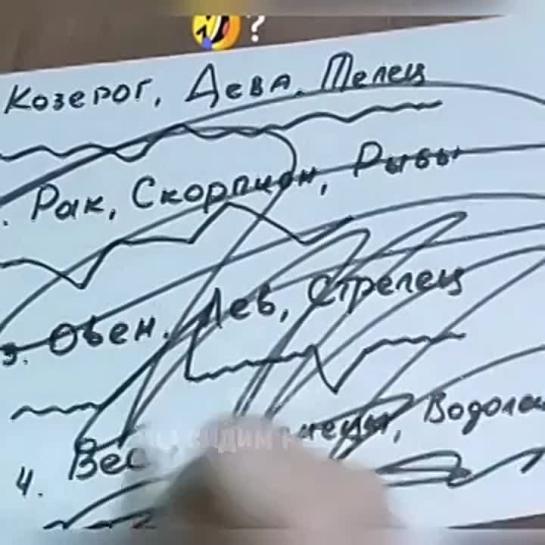 ?
Козерог, Дева, Телец
. Рак, Скорпион, Рыбы
3. Овен, Лев, Стрелец
4.